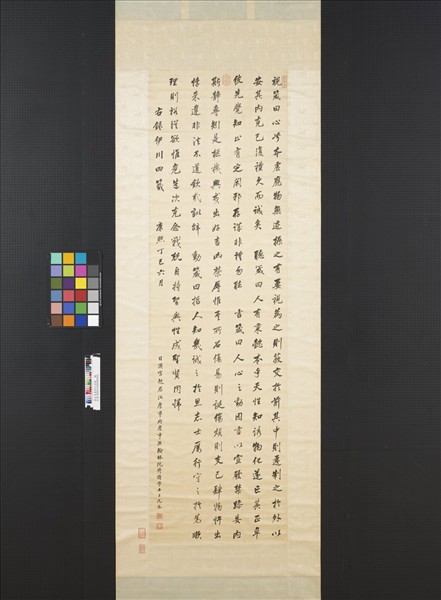 視箴曰心兮本虛應物無迹操之有要視為之則蔽交於前其中則遷制之於外以
安其內克己復禮久而誠矣 聽箴曰人有秉彝本乎天性知誘物化遂亡其正卓
彼先覺知止有定閑邪存誠非禮勿聽 言箴曰人心之動因言以宣發禁躁妄內
斯靜專矧是樞機興戎出好吉凶榮辱惟其所召傷易則誕傷煩則支己肆物忤出
悖來違非法不道欽哉訓辭 動箴曰哲人知幾誠之於思志士厲行守之於為順
理則裕從欲惟危造次克念戰兢自持習與性成聖賢同歸
右錄伊川四箴 康熙丁巳六月
日講官起居注詹事府詹事兼翰林院侍讀學士